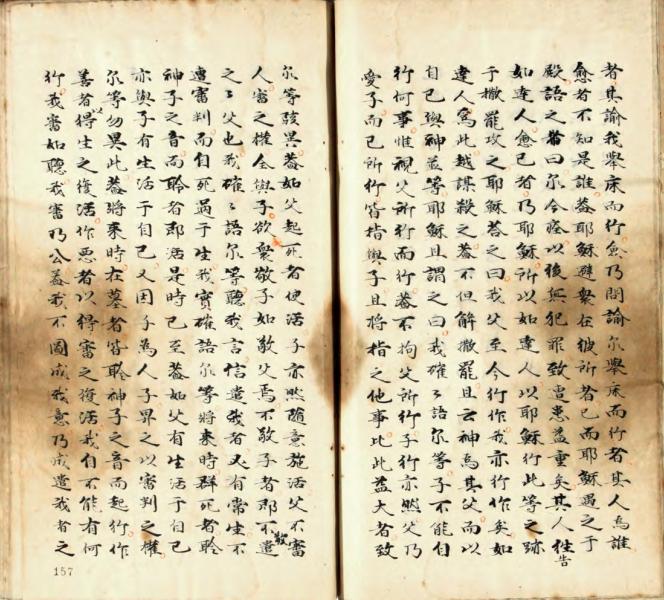 者其諭我舉床而行愈乃問諭尔舉床而行者其人為誰
愈者不知是誰葢耶穌避衆在彼所者已而耶穌遇之于
殿語之曰尔今痊以後無犯罪致遭患益重矣其人徃告
如達人愈已者乃耶穌所以如達人以耶穌行此等之跡
于撒罷攻之耶穌荅之曰我父至今行作我亦行作矣如
達人為此越謀殺之葢不但解撒罷且云神為其父而以
自已與神並等耶穌且謂之曰我確〻語尔等子不能自
行何事惟視父所行而行葢不拘父所行子行亦然父乃
愛子而已所行皆指與子且將指之他事比此益大者致
尔等駭異葢如父起死者使活子亦然隨意施活父不審
人審之權全與子欲衆敬子如敬父焉不敬子者即不敬遣
之〻父也我確〻語尔等聽我言信遣我者乃有常生不
遭審判而自死過于生我實確語尔等將来時群死者聆
神子之音而聆者即活是時已至葢如父有生活于自已
亦與子有生活于自已又因子為人子畀之以審判之權
尔等勿異此葢將来時在墓者皆聆神子之音而起行作
善者得生之復活作悪者以得審之復活我自不能有何
行我審如聽我審乃公葢我不圖成我意乃成遣我者之
157